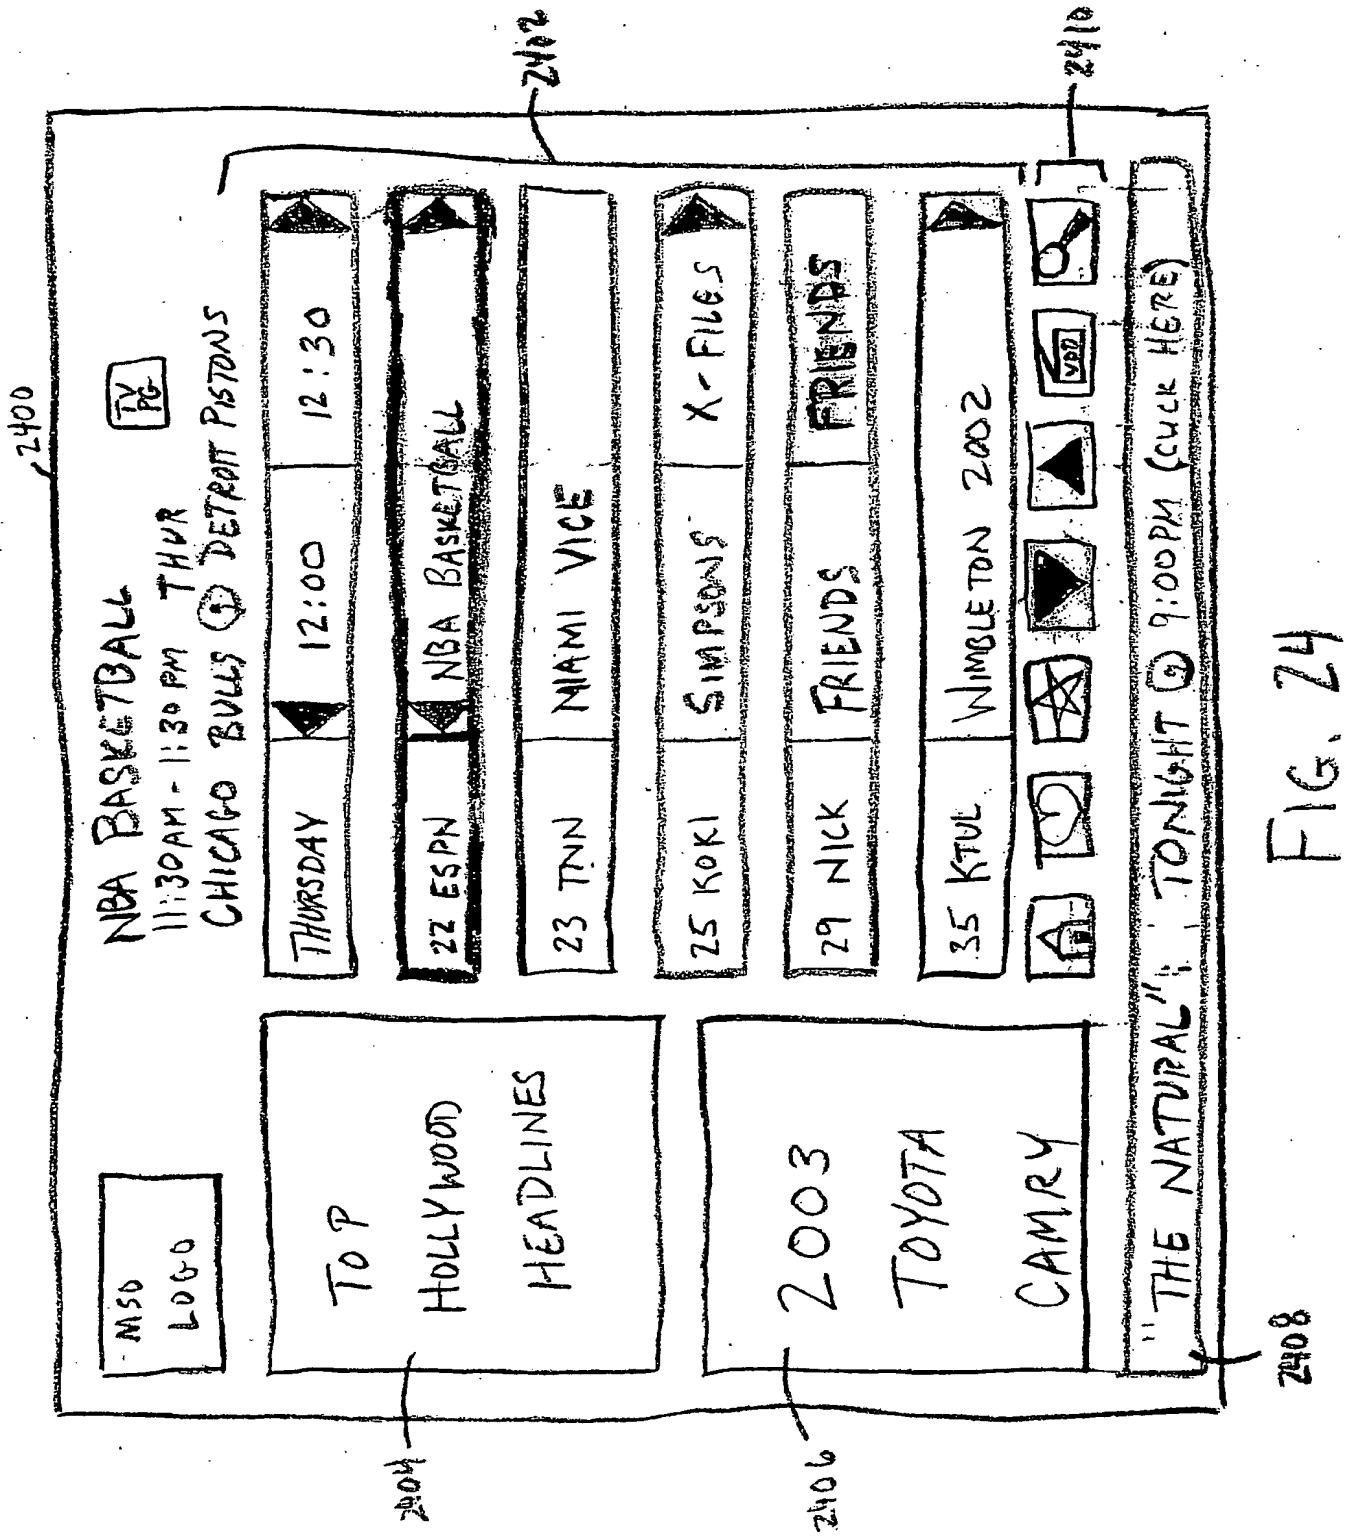 2400
MSO
LOGO
NBA BASKETBALL
TV
PG
11:30AM - 1:30 PM THUR
CHICAGO BULLS @ DETROIT PISTONS
2402
THURSDAY 12:00 12:30
22 ESPN NBA BASKETBALL
23 TNN MIAMI VICE
25 KOKI SIMPSONS X-FILES
29 NICK FRIENDS FRIENDS
35 KTUL WIMBLETON 2002
2404
TOP
HOLLYWOOD
HEADLINES
2406
2003
TOYOTA
CAMRY
VOD
2410
"THE NATURAL": TONIGHT @ 9:00PM (CLICK HERE)
2408
FIG. 24